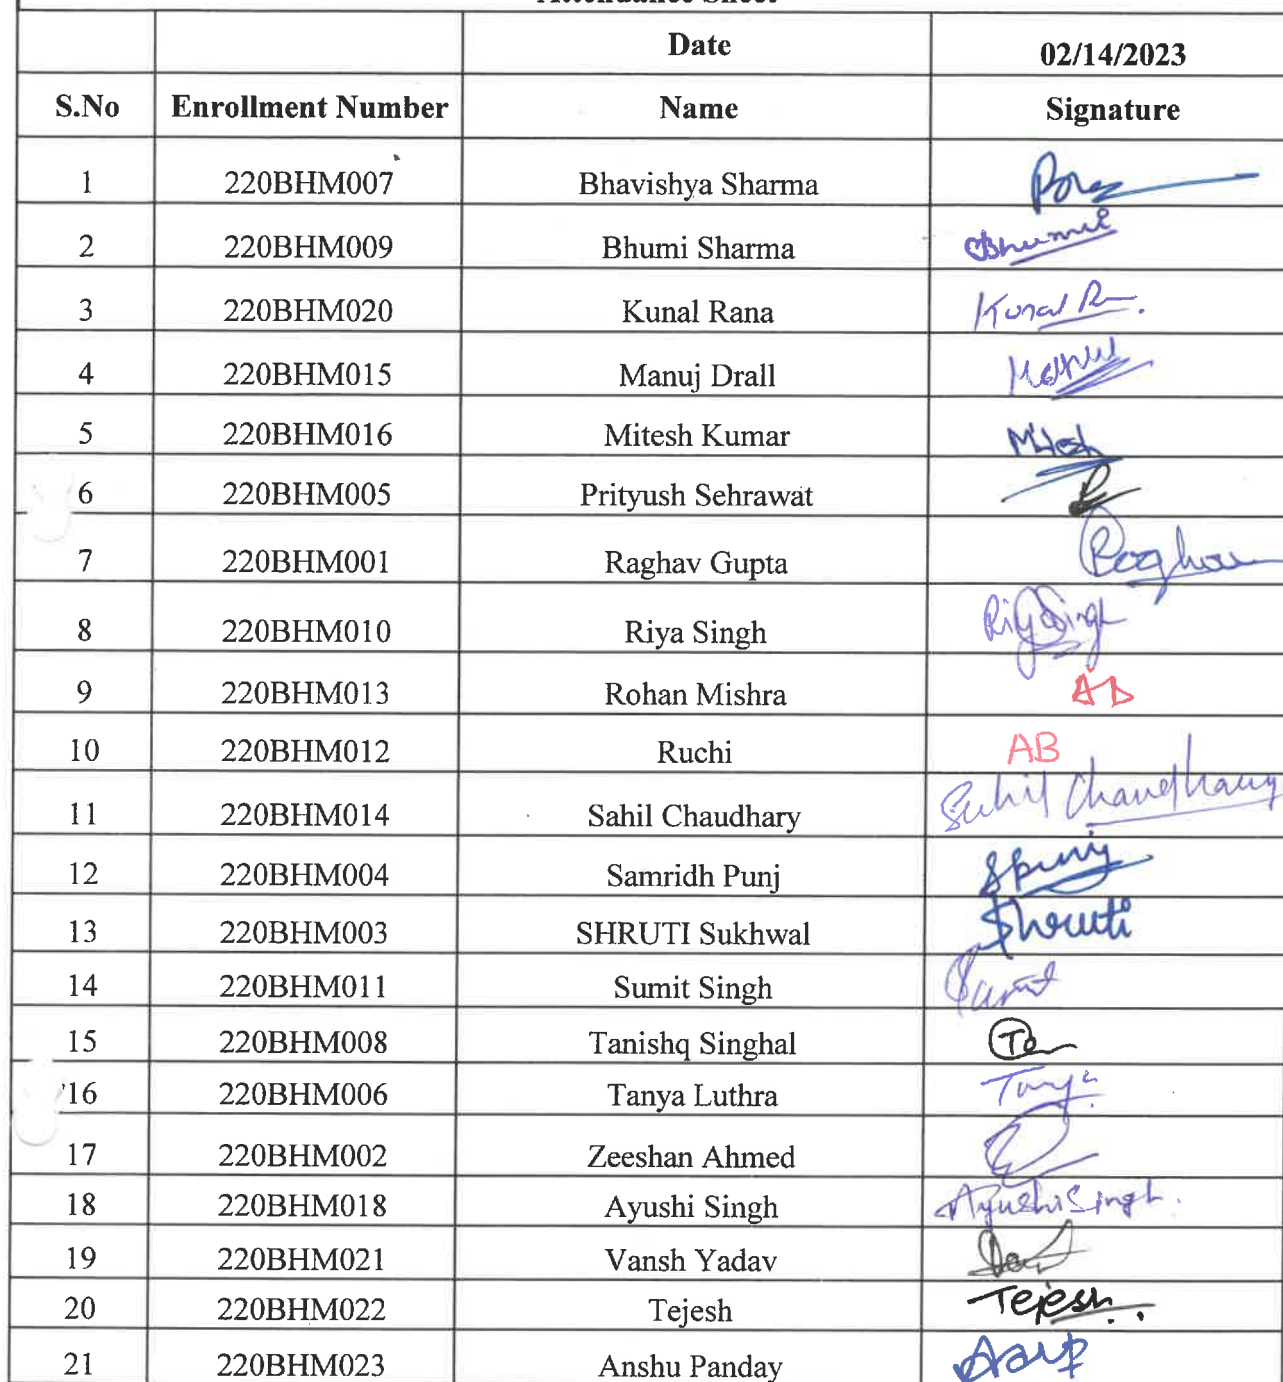 Attendance Sheet
Date 02/14/2023
S.No Enrollment Number Name Signature
1 220BHM007 Bhavishya Sharma
2 220BHM009 Bhumi Sharma Bhumi
3 220BHM020 Kunal Rana Kunal R
4 220BHM015 Manuj Drall Manuj
5 220BHM016 Mitesh Kumar Mitesh
6 220BHM005 Prityush Sehrawat
7 220BHM001 Raghav Gupta Raghav
8 220BHM010 Riya Singh Riya Singh
9 220BHM013 Rohan Mishra AB
10 220BHM012 Ruchi AB
11 220BHM014 Sahil Chaudhary Sahil Chaudhary
12 220BHM004 Samridh Punj Spunj
13 220BHM003 SHRUTI Sukhwal Shruti
14 220BHM011 Sumit Singh Sumit
15 220BHM008 Tanishq Singhal
16 220BHM006 Tanya Luthra Tanya
17 220BHM002 Zeeshan Ahmed
18 220BHM018 Ayushi Singh Ayushi Singh.
19 220BHM021 Vansh Yadav
20 220BHM022 Tejesh Tejesh.
21 220BHM023 Anshu Panday